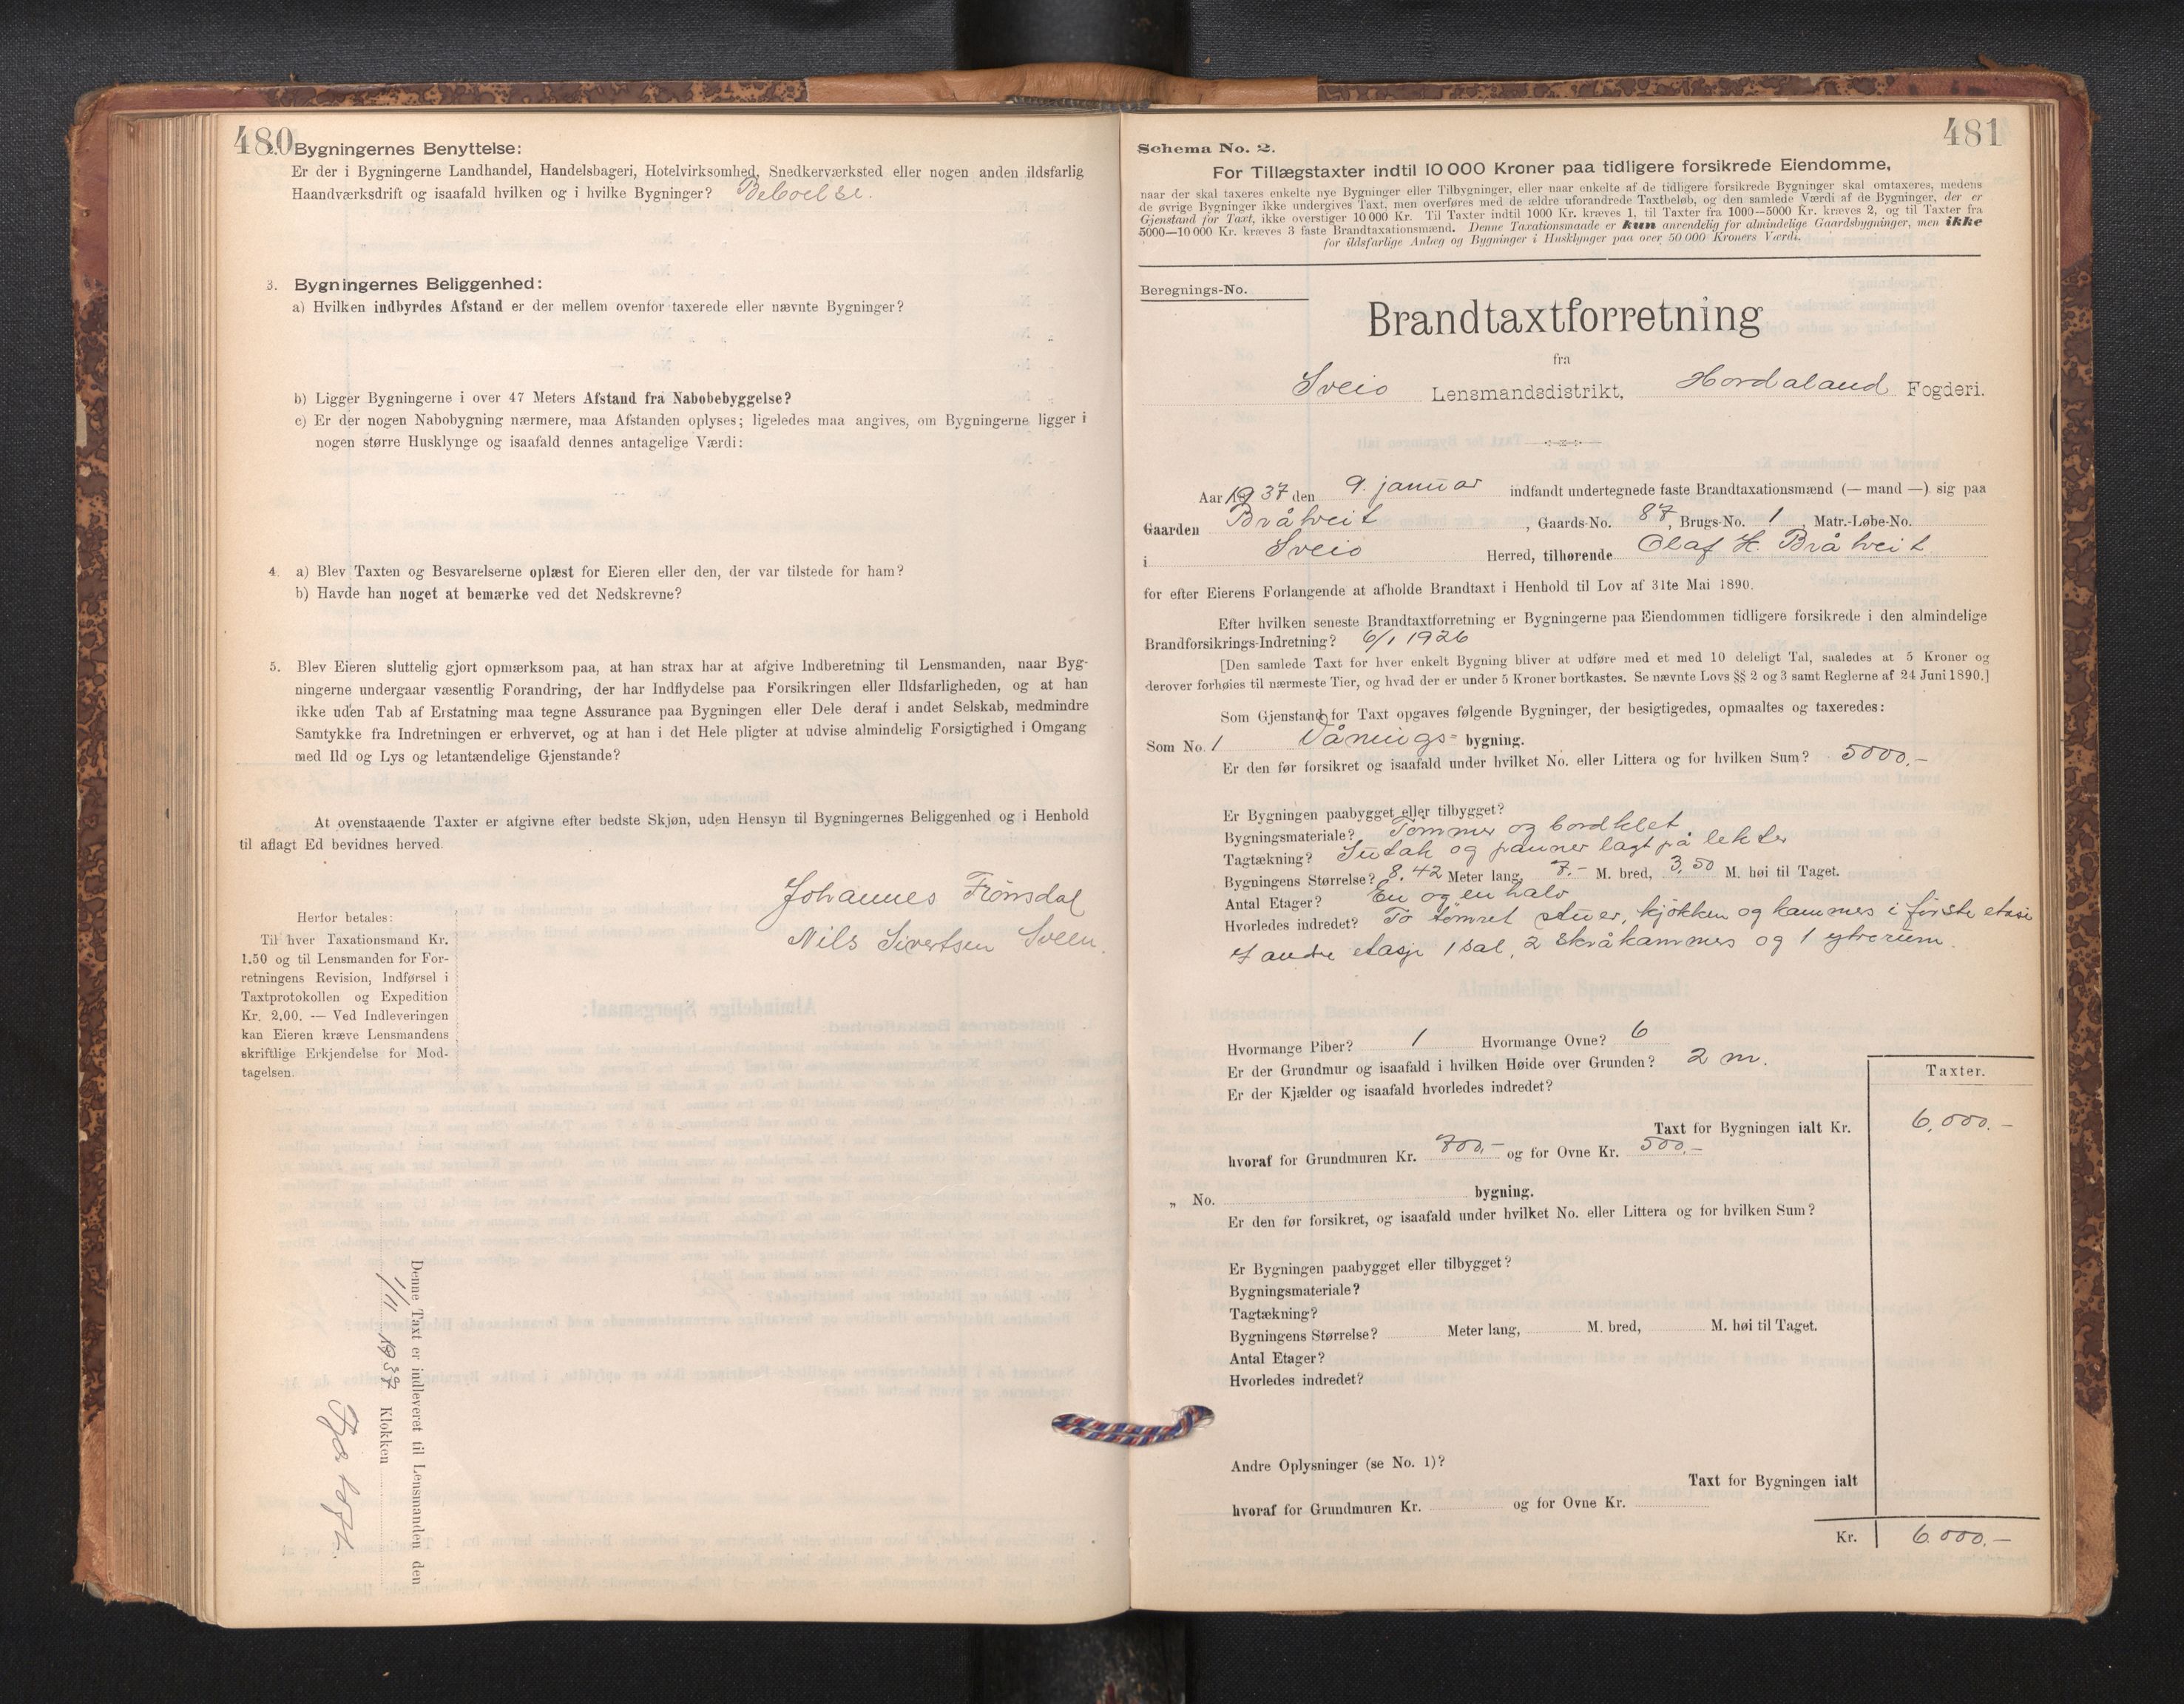 480
2. Bygningernes Benyttelse:
Er der i Bygningerne Landhandel, Handelsbageri, Hotelvirksomhed, Snedkerværksted eller nogen anden ildsfarlig
Haandværksdrift og isaafald hvilken og i hvilke Bygninger? Beboelse.
3. Bygningernes Beliggenhed:
a) Hvilken indbyrdes Afstand er der mellem ovenfor taxerede eller nævnte Bygninger?
b) Ligger Bygningerne i over 47 Meters Afstand fra Nabobebyggelse?
c) Er der nogen Nabobygning nærmere, maa Afstanden oplyses; ligeledes maa angives, om Bygningerne ligger i
nogen større Husklynge og isaafald dennes antagelige Værdi:
4. a) Blev Taxten og Besvarelserne oplæst for Eieren eller den, der var tilstede for ham?
b) Havde han noget at bemærke ved det Nedskrevne?
5. Blev Eieren sluttelig gjort opmærksom paa, at han strax har at afgive Indberetning til Lensmanden, naar Byg-
ningerne undergaar væsentlig Forandring, der har Indflydelse paa Forsikringen eller Ildsfarligheden, og at han
ikke uden Tab af Erstatning maa tegne Assurance paa Bygningen eller Dele deraf i andet Selskab, medmindre
Samtykke fra Indretningen er erhvervet, og at han i det Hele pligter at udvise almindelig Forsigtighed i Omgang
med Ild og Lys og letantændelige Gjenstande?
At ovenstaaende Taxter er afgivne efter bedste Skjøn, uden Hensyn til Bygningernes Beliggenhed og i Henhold
til aflagt Ed bevidnes herved.
Johannes Trönsdal
Nils Sivertsen Sveen.
Herfor betales:
Til hver Taxationsmand Kr.
1.50 og til Lensmanden for For-
retningens Revision, Indførsel i
Taxtprotokollen og Expedition
Kr. 2.00. — Ved Indleveringen
kan Eieren kræve Lensmandens
skriftlige Erkjendelse for Mod-
tagelsen.
Denne Taxt er indleveret til Lensmanden den
1/11 1937 Klokken
481
Schema No. 2.
For Tillægstaxter indtil 10 000 Kroner paa tidligere forsikrede Eiendomme,
naar der skal taxeres enkelte nye Bygninger eller Tilbygninger, eller naar enkelte af de tidligere forsikrede Bygninger skal omtaxeres, medens
de øvrige Bygninger ikke undergives Taxt, men overføres med de ældre uforandrede Taxtbeløb, og den samlede Værdi af de Bygninger, der er
Gjenstand for Taxt, ikke overstiger 10 000 Kr. Til Taxter indtil 1000 Kr. kræves 1, til Taxter fra 1000—5000 Kr. kræves 2, og til Taxter fra
5000—10 000 Kr. kræves 3 faste Brandtaxationsmænd. Denne Taxationsmaade er kun anvendelig for almindelige Gaardsbygninger, men ikke
for ildsfarlige Anlæg og Bygninger i Husklynger paa over 50 000 Kroners Værdi.
Beregnings-No.
Brandtaxtforretning
fra
Sveio Lensmandsdistrikt, Hordaland Fogderi.
Aar 1937 den 9. januar indfandt undertegnede faste Brandtaxationsmænd (— mand —) sig paa
Gaarden Bråtveit, Gaards-No. 87, Brugs-No. 1, Matr.-Løbe-No.
i Sveio Herred, tilhørende Olaf H. Bråtveit
for efter Eierens Forlangende at afholde Brandtaxt i Henhold til Lov af 31te Mai 1890.
Efter hvilken seneste Brandtaxtforretning er Bygningerne paa Eiendommen tidligere forsikrede i den almindelige
Brandforsikrings-Indretning? 6/1 1926
[Den samlede Taxt for hver enkelt Bygning bliver at udføre med et med 10 deleligt Tal, saaledes at 5 Kroner og
derover forhøies til nærmeste Tier, og hvad der er under 5 Kroner bortkastes. Se nævnte Lovs §§ 2 og 3 samt Reglerne af 24 Juni 1890.]
Som Gjenstand for Taxt opgaves følgende Bygninger, der besigtigedes, opmaaltes og taxeredes:
Som No. 1 Vånings- bygning.
Er den før forsikret og isaafald under hvilket No. eller Littera og for hvilken Sum? 5000.-
Er Bygningen paabygget eller tilbygget?
Bygningsmateriale? Tømmer og bordklet
Tagtækning? Sutak og panner lagt på lekter
Bygningens Størrelse? 8.42 Meter lang, 7.- M. bred, 3,50 M. høi til Taget.
Antal Etager? En og en halv
Hvorledes indredet? To tømret stuer, kjøkken og kammers i første etasi
I andre etasje 1 sal, 2 skråkammers og 1 ytrerum.
Hvormange Piber? 1 Hvormange Ovne? 6
Er der Grundmur og isaafald i hvilken Høide over Grunden? 2 m.
Er der Kjælder og isaafald hvorledes indredet?
Taxter.
Taxt for Bygningen ialt Kr. 6,000.-
hvoraf for Grundmuren Kr. 700,- og for Ovne Kr. 500,-
„ No. bygning.
Er den før forsikret, og isaafald under hvilket No. eller Littera og for hvilken Sum?
Er Bygningen paabygget eller tilbygget?
Bygningsmateriale?
Tagtækning?
Bygningens Størrelse? Meter lang, M. bred, M. høi til Taget.
Antal Etager?
Hvorledes indredet?
Andre Oplysninger (se No. 1)?
Taxt for Bygningen ialt
hvoraf for Grundmuren Kr. og for Ovne Kr.
Kr. 6.000.-